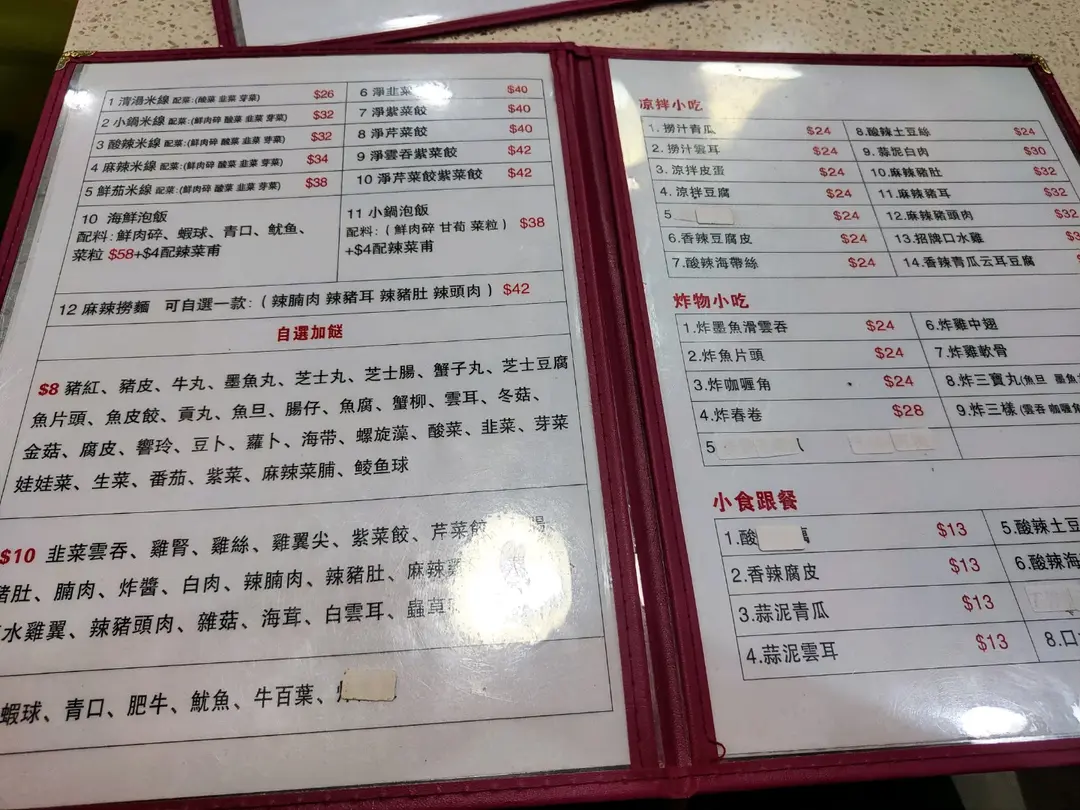 1 清湯米線 配菜:(酸菜 韭菜 芽菜) $26
2 小鍋米線 配菜:(鮮肉碎 酸菜 韭菜 芽菜) $32
3 酸辣米線 配菜:(鮮肉碎 酸菜 韭菜 芽菜) $32
4 麻辣米線 配菜:(鮮肉碎 酸菜 韭菜 芽菜) $34
5 鮮茄米線 配菜:(鮮肉碎 酸菜 韭菜 芽菜) $38
6 淨韭菜 $40
7 淨紫菜餃 $40
8 淨芹菜餃 $40
9 淨雲吞紫菜餃 $42
10 淨芹菜餃紫菜餃 $42
10 海鮮泡飯
配料:鮮肉碎、蝦球、青口、魷魚、
菜粒 $58+$4配辣菜甫
11 小鍋泡飯
配料:(鮮肉碎 甘荀 菜粒) $38
+$4配辣菜甫
12 麻辣撈麵 可自選一款:(辣腩肉 辣豬耳 辣豬肚 辣頭肉) $42
自選加餸
$8 豬紅、豬皮、牛丸、墨魚丸、芝士丸、芝士腸、蟹子丸、芝士豆腐
魚片頭、魚皮餃、貢丸、魚旦、腸仔、魚腐、蟹柳、雲耳、冬菇、
金菇、腐皮、響玲、豆卜、蘿卜、海帶、螺旋藻、酸菜、韭菜、芽菜
娃娃菜、生菜、番茄、紫菜、麻辣菜脯、鲮鱼球
$10 韭菜雲吞、雞腎、雞絲、雞翼尖、紫菜餃、芹菜餃 腸
豬肚、腩肉、炸醬、白肉、辣腩肉、辣豬肚、麻辣
水雞翼、辣豬頭肉、雜菇、海茸、白雲耳、蟲草
蝦球、青口、肥牛、魷魚、牛百葉、
涼拌小吃
1. 撈汁青瓜 $24
2. 撈汁雲耳 $24
3. 涼拌皮蛋 $24
4. 涼拌豆腐 $24
5 $24
6.香辣豆腐皮 $24
7.酸辣海帶絲 $24
8.酸辣土豆絲 $24
9. 蒜泥白肉 $30
10.麻辣豬肚 $32
11.麻辣豬耳 $32
12.麻辣豬頭肉 $32
13.招牌口水雞
14.香辣青瓜云耳豆腐
炸物小吃
1.炸墨魚滑雲吞 $24
2.炸魚片頭 $24
3.炸咖喱角 $24
4.炸春卷 $28
5
6.炸雞中翅
7.炸雞軟骨
8.炸三寶丸(魚旦 墨魚
9.炸三樣(雲吞 咖喱角
小食跟餐
1.酸 $13
2.香辣腐皮 $13
3.蒜泥青瓜 $13
4.蒜泥雲耳 $13
5.酸辣土豆
6.酸辣海
8.口